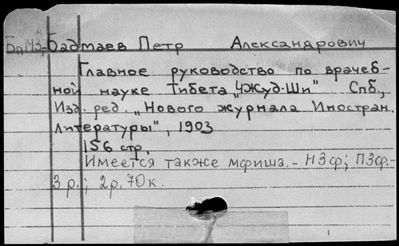 Бп143. Бадмаев Петр Александрович
Главное руководство по врачеб-
ной науке Тибета "Жуд-Ши" Спб.,
Изд. ред. "Нового журнала Иностран.
литературы", 1903
156 стр.
Имеется также мфиша. - НЗф; ПЗф. -
3 р.; 2 р. 70 к.